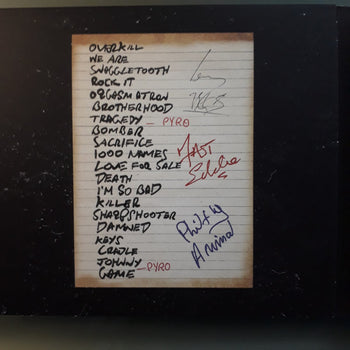 OVERKILL
WE ARE
SNAGGLETOOTH
ROCK IT
ORGASMATRON
BROTHERHOOD
TRAGEDY - PYRO
BOMBER
SACRIFICE
1000 NAMES
LOVE FOR SALE
DEATH
I'M SO BAD
KILLER
SHARPSHOOTER
DAMNED
KEYS
CRADLE
JOHNNY
GAME - PYRO
Lemmy
FAST
Eddie
Philthy
Animal